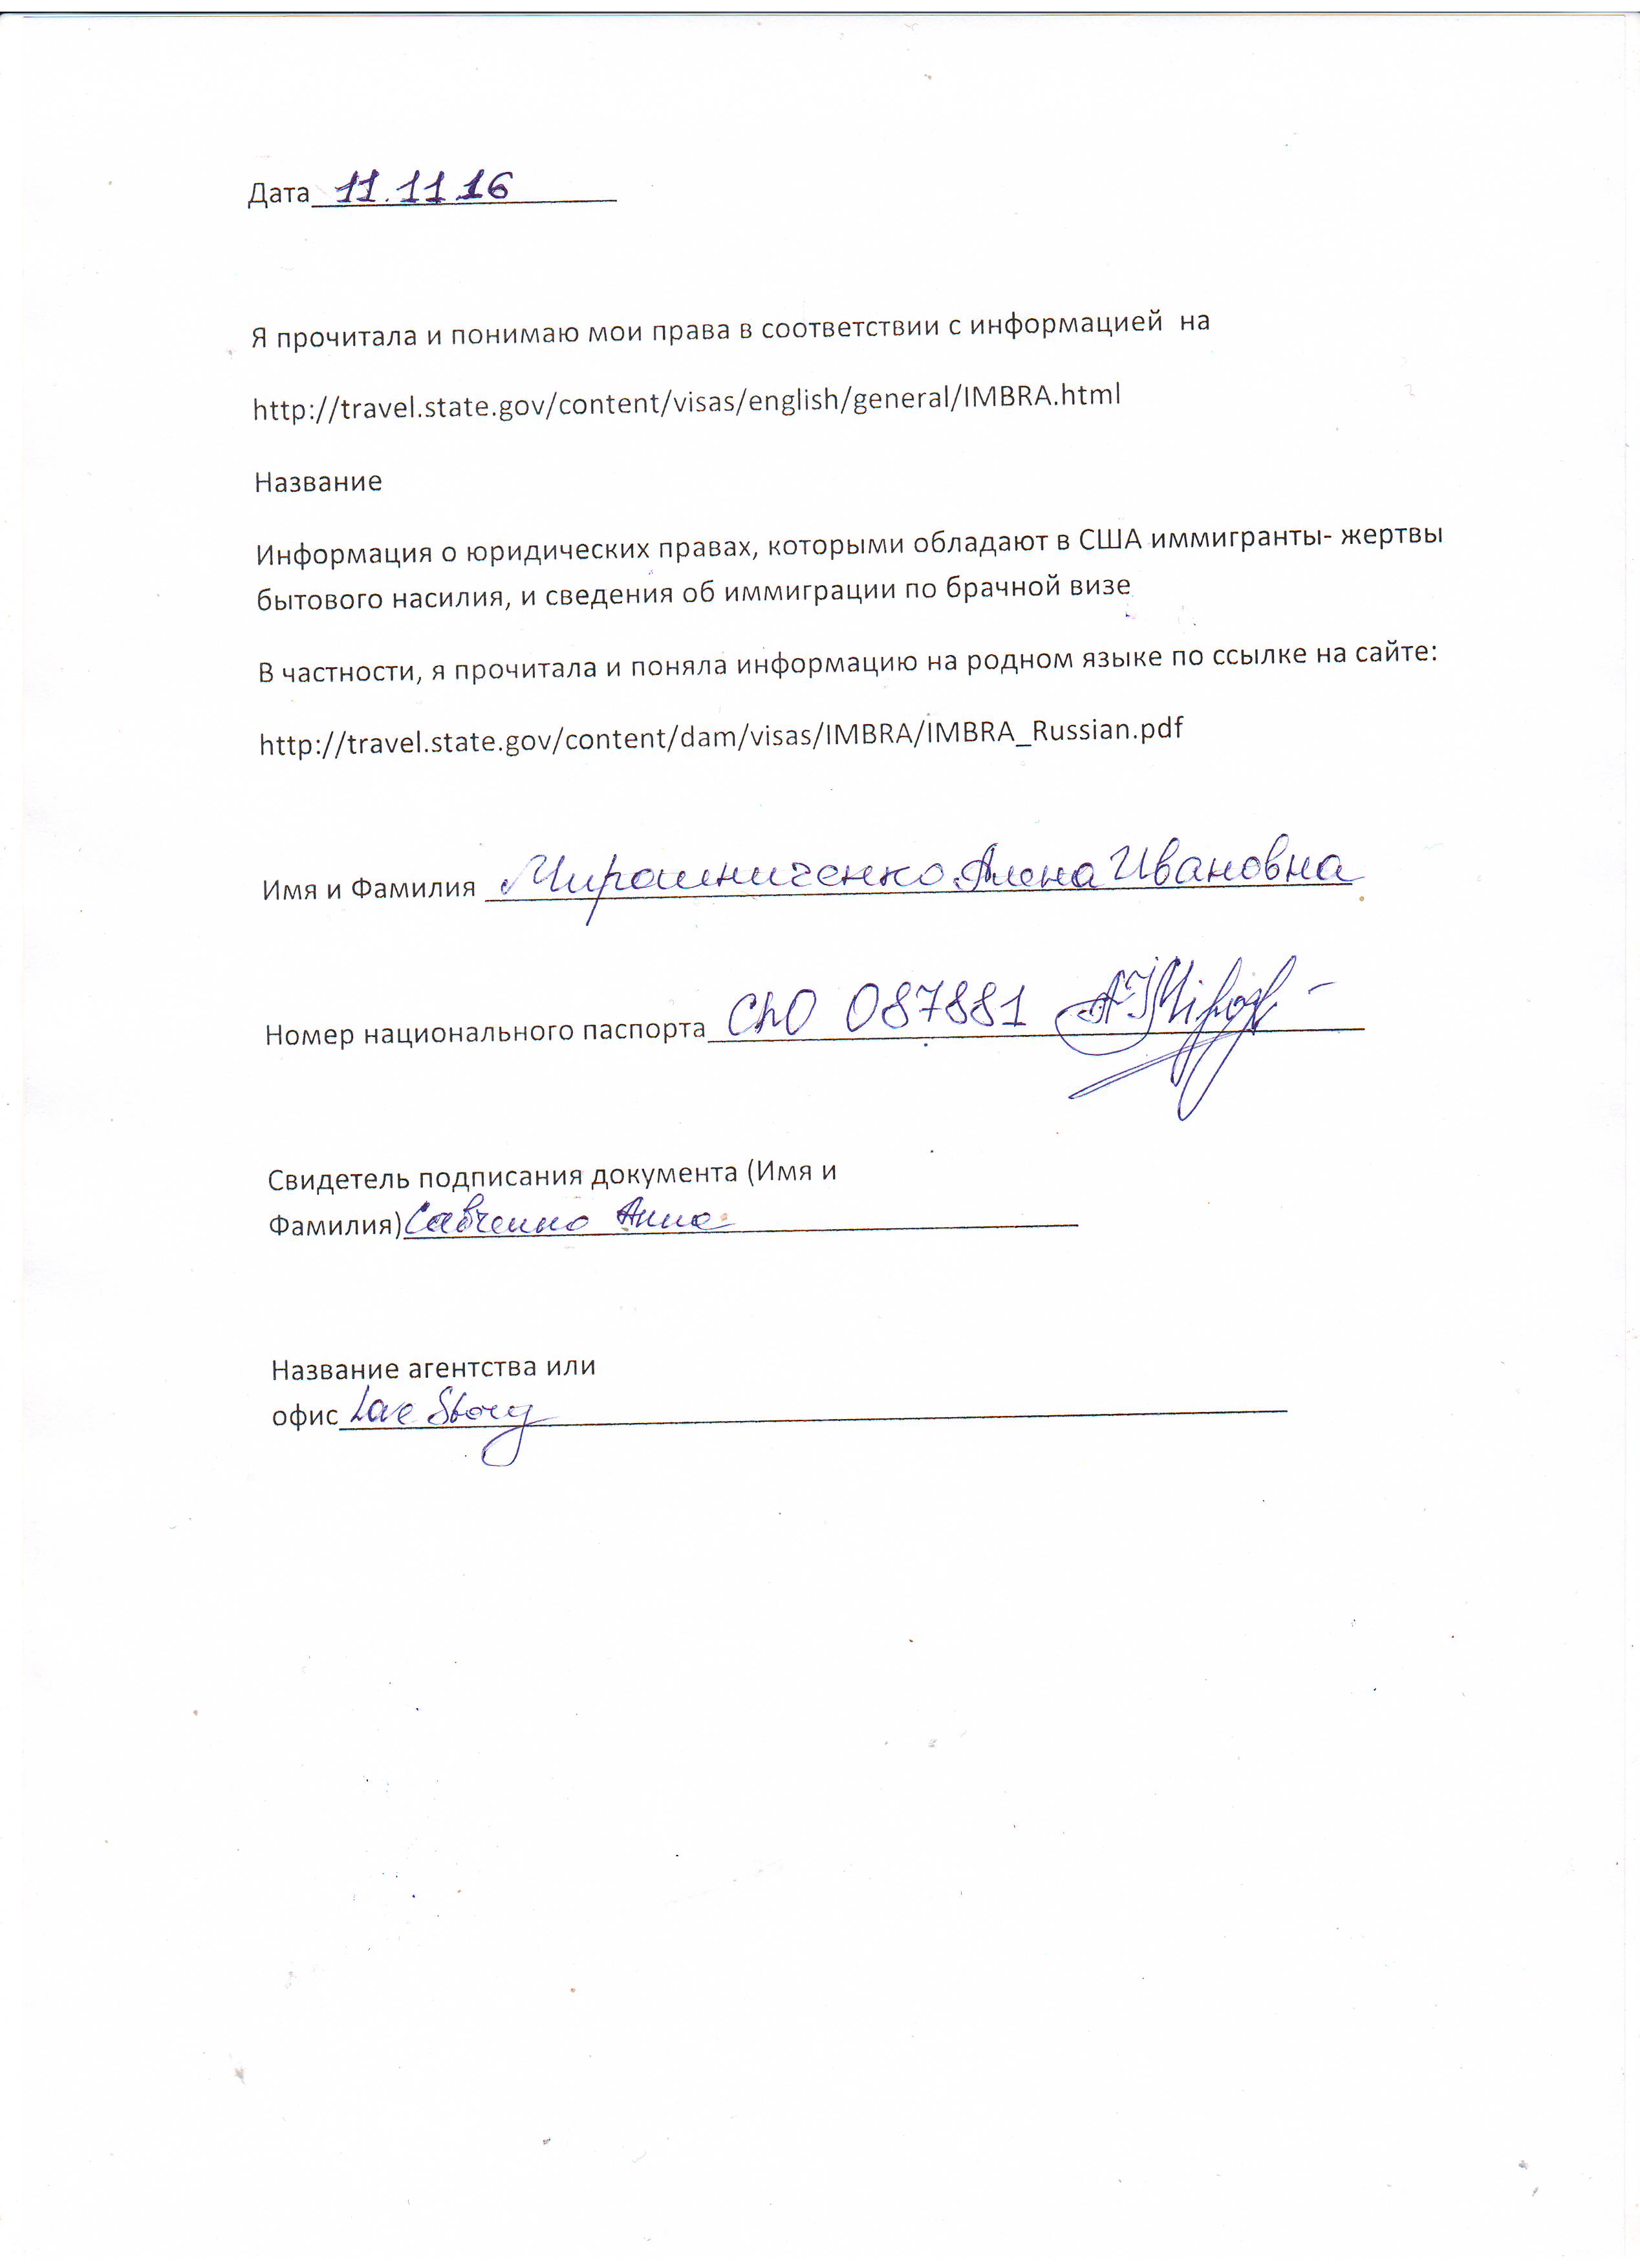 Дата 11.11.16
Я прочитала и понимаю мои права в соответствии с информацией на
http://travel.state.gov/content/visas/english/general/IMBRA.html
Название
Информация о юридических правах, которыми обладают в США иммигранты- жертвы
бытового насилия, и сведения об иммиграции по брачной визе
В частности, я прочитала и поняла информацию на родном языке по ссылке на сайте:
http://travel.state.gov/content/dam/visas/IMBRA/IMBRA_Russian.pdf
Имя и Фамилия Мирошниченко Алена Ивановна
Номер национального паспорта 087881
Свидетель подписания документа (Имя и
Фамилия) Савченко Анна
Название агентства или
офис Love Story